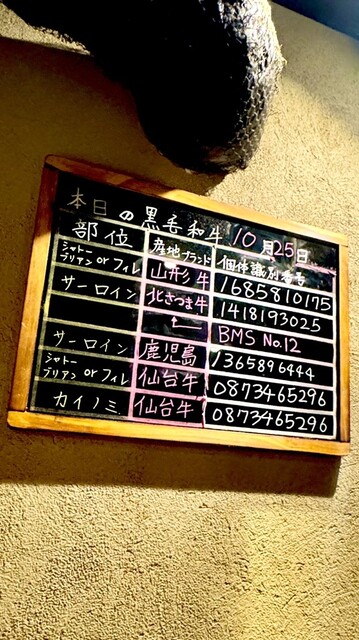 本日の黒毛和牛 10月25日
部位 産地ブランド 個体識別番号
シャトーブリアン or フィレ 山形牛 1685810175
サーロイン 北さつま牛 1418193025
BMS No.12
サーロイン 鹿児島 1365896444
シャトーブリアン or フィレ 仙台牛 0873465296
カイノミ 仙台牛 0873465296